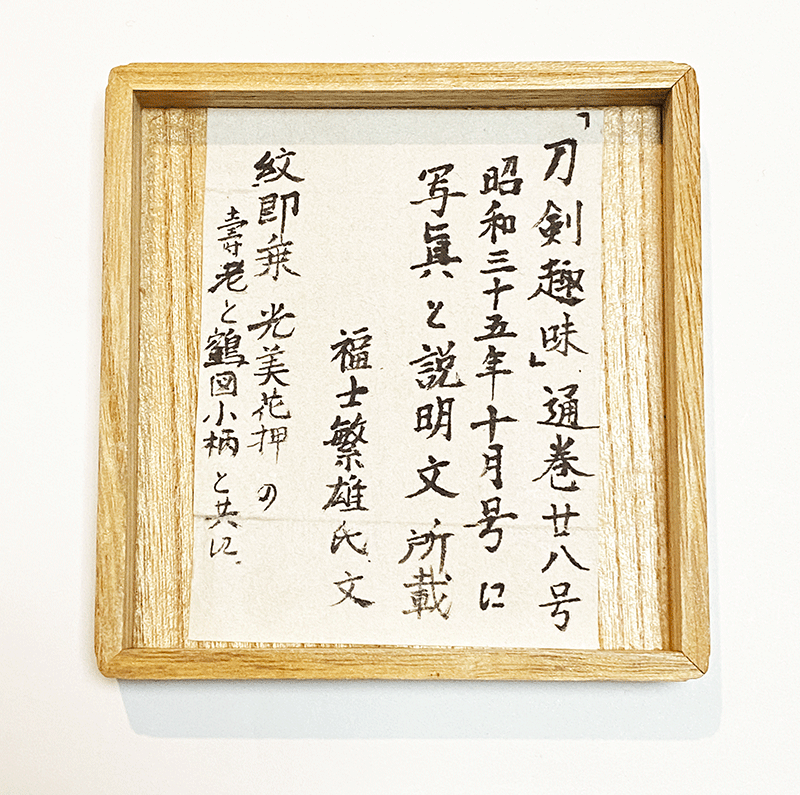 「刀剣趣味」通巻廿八号
昭和三十五年十月号に
写眞と説明文所載
福士繁雄氏文
紋即乗 光美花押の
壽老と鶴図小柄と共に